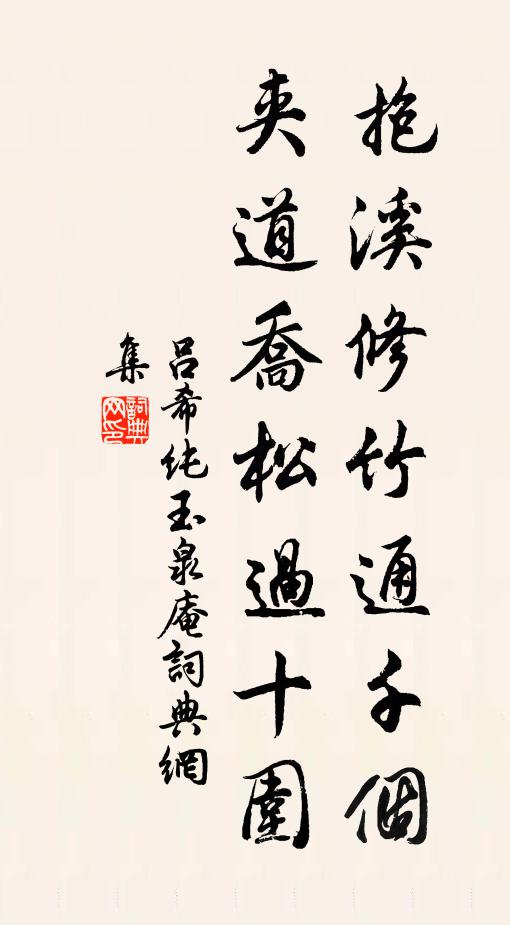 抱溪修竹通千個
夾道喬松過十圍
呂希純玉泉庵詞典網
集
詞典
网印